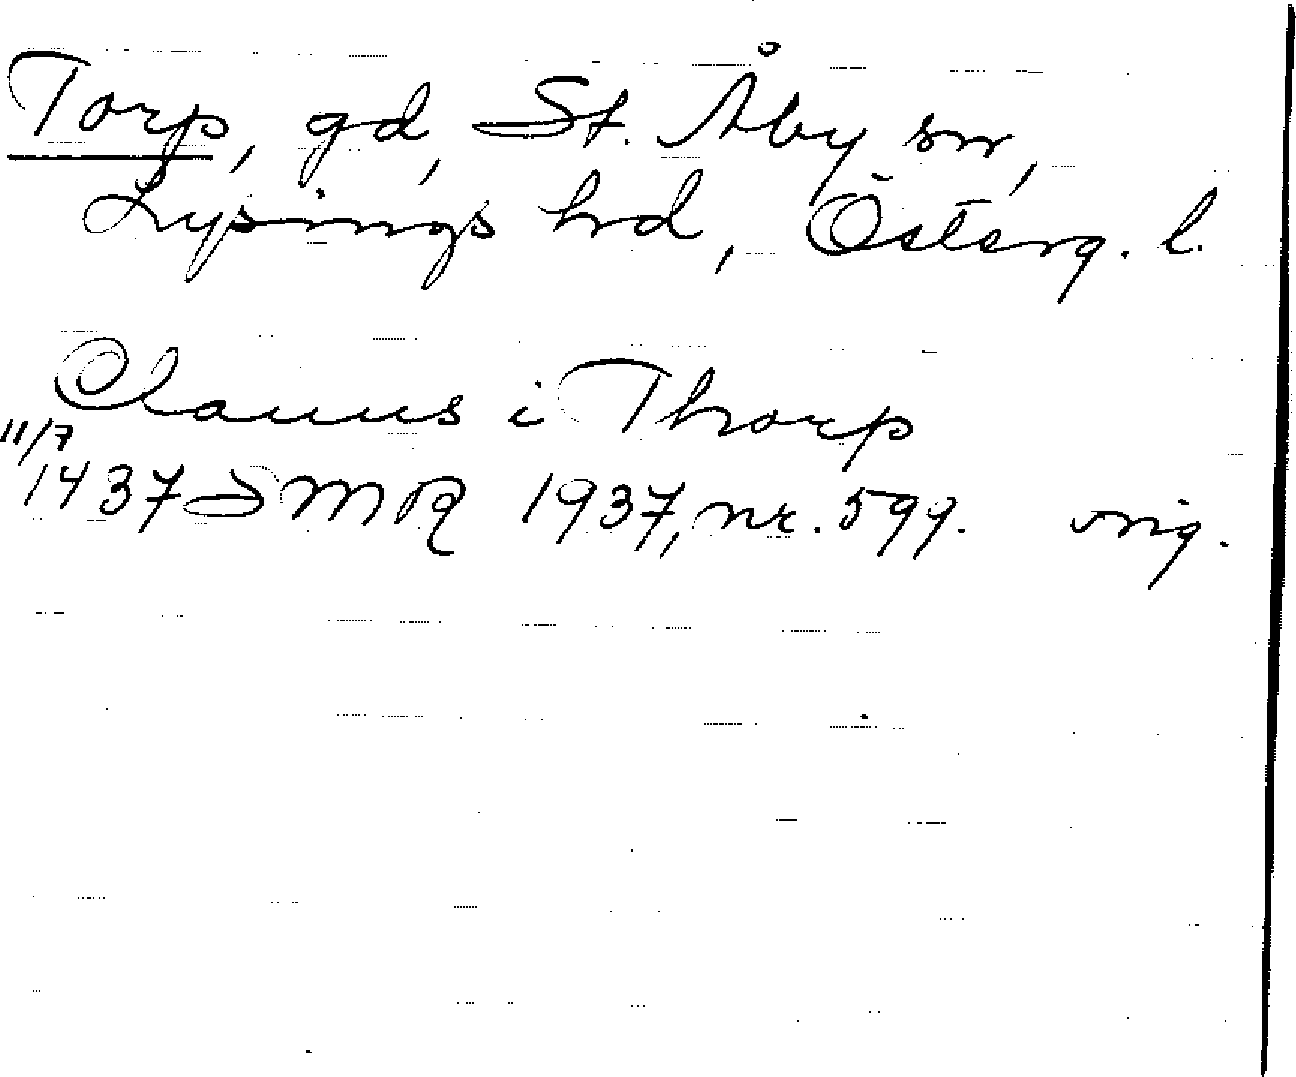 Torp, gd, St. Åby sn,
Lysings hd, Österg. l.
Clauus i Thorp
11/7
1437 SMR 1937, nr. 599. orig.